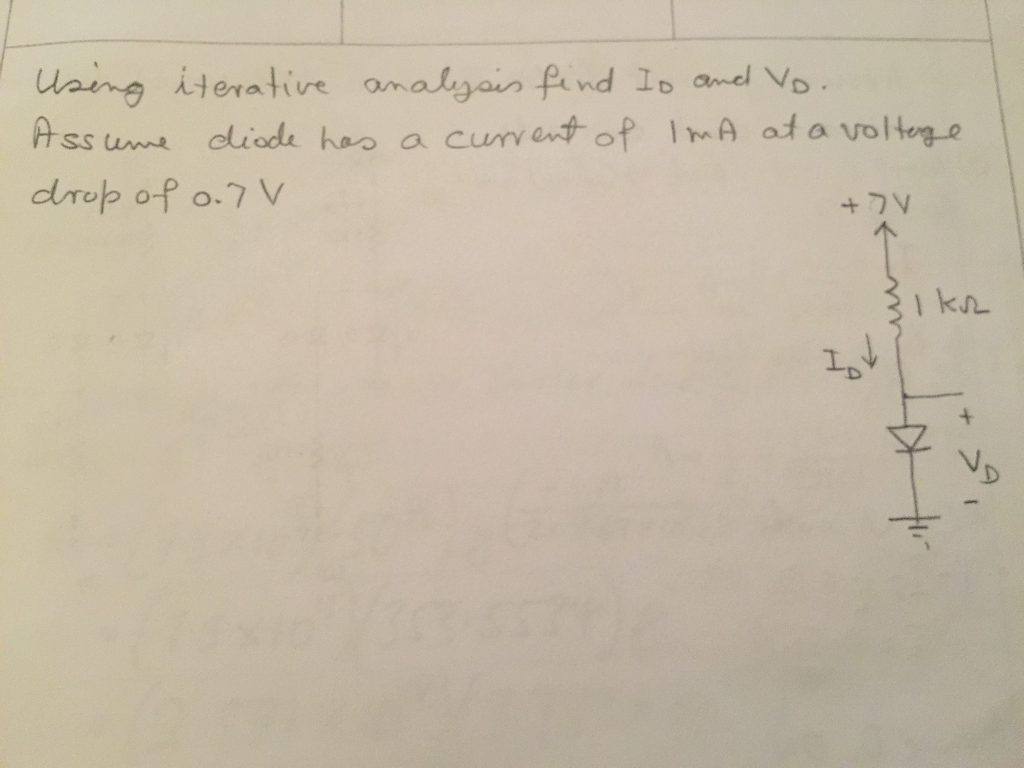 Using iterative analysis find ID and VD.
Assume diode has a current of 1mA at a voltage
drop of 0.7 V
+7V
1 kΩ
ID
+
VD
-